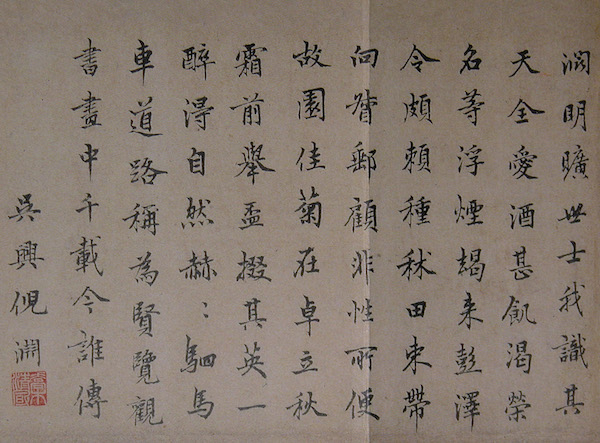 渊明曠世士我識其
天全愛酒甚飢渴榮
名等浮煙朅来彭澤
令頗頼種秫田束帶
向督郵顧非性所便
故園佳菊在卓立秋
霜前舉盃掇其英一
醉淂自然赫〻駟馬
車道路稱為賢覽觀
書畫中千載今誰傳
吳興倪淵